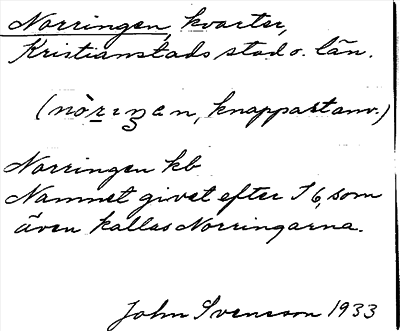 Norringen, kvarter,
Kristianstads stad o. län.
(nòrıŋɛn, knappast anv.)
Norringen kb
Namnet givet efter I 6, som
även kallas Norringarna.
John Svensson 1933